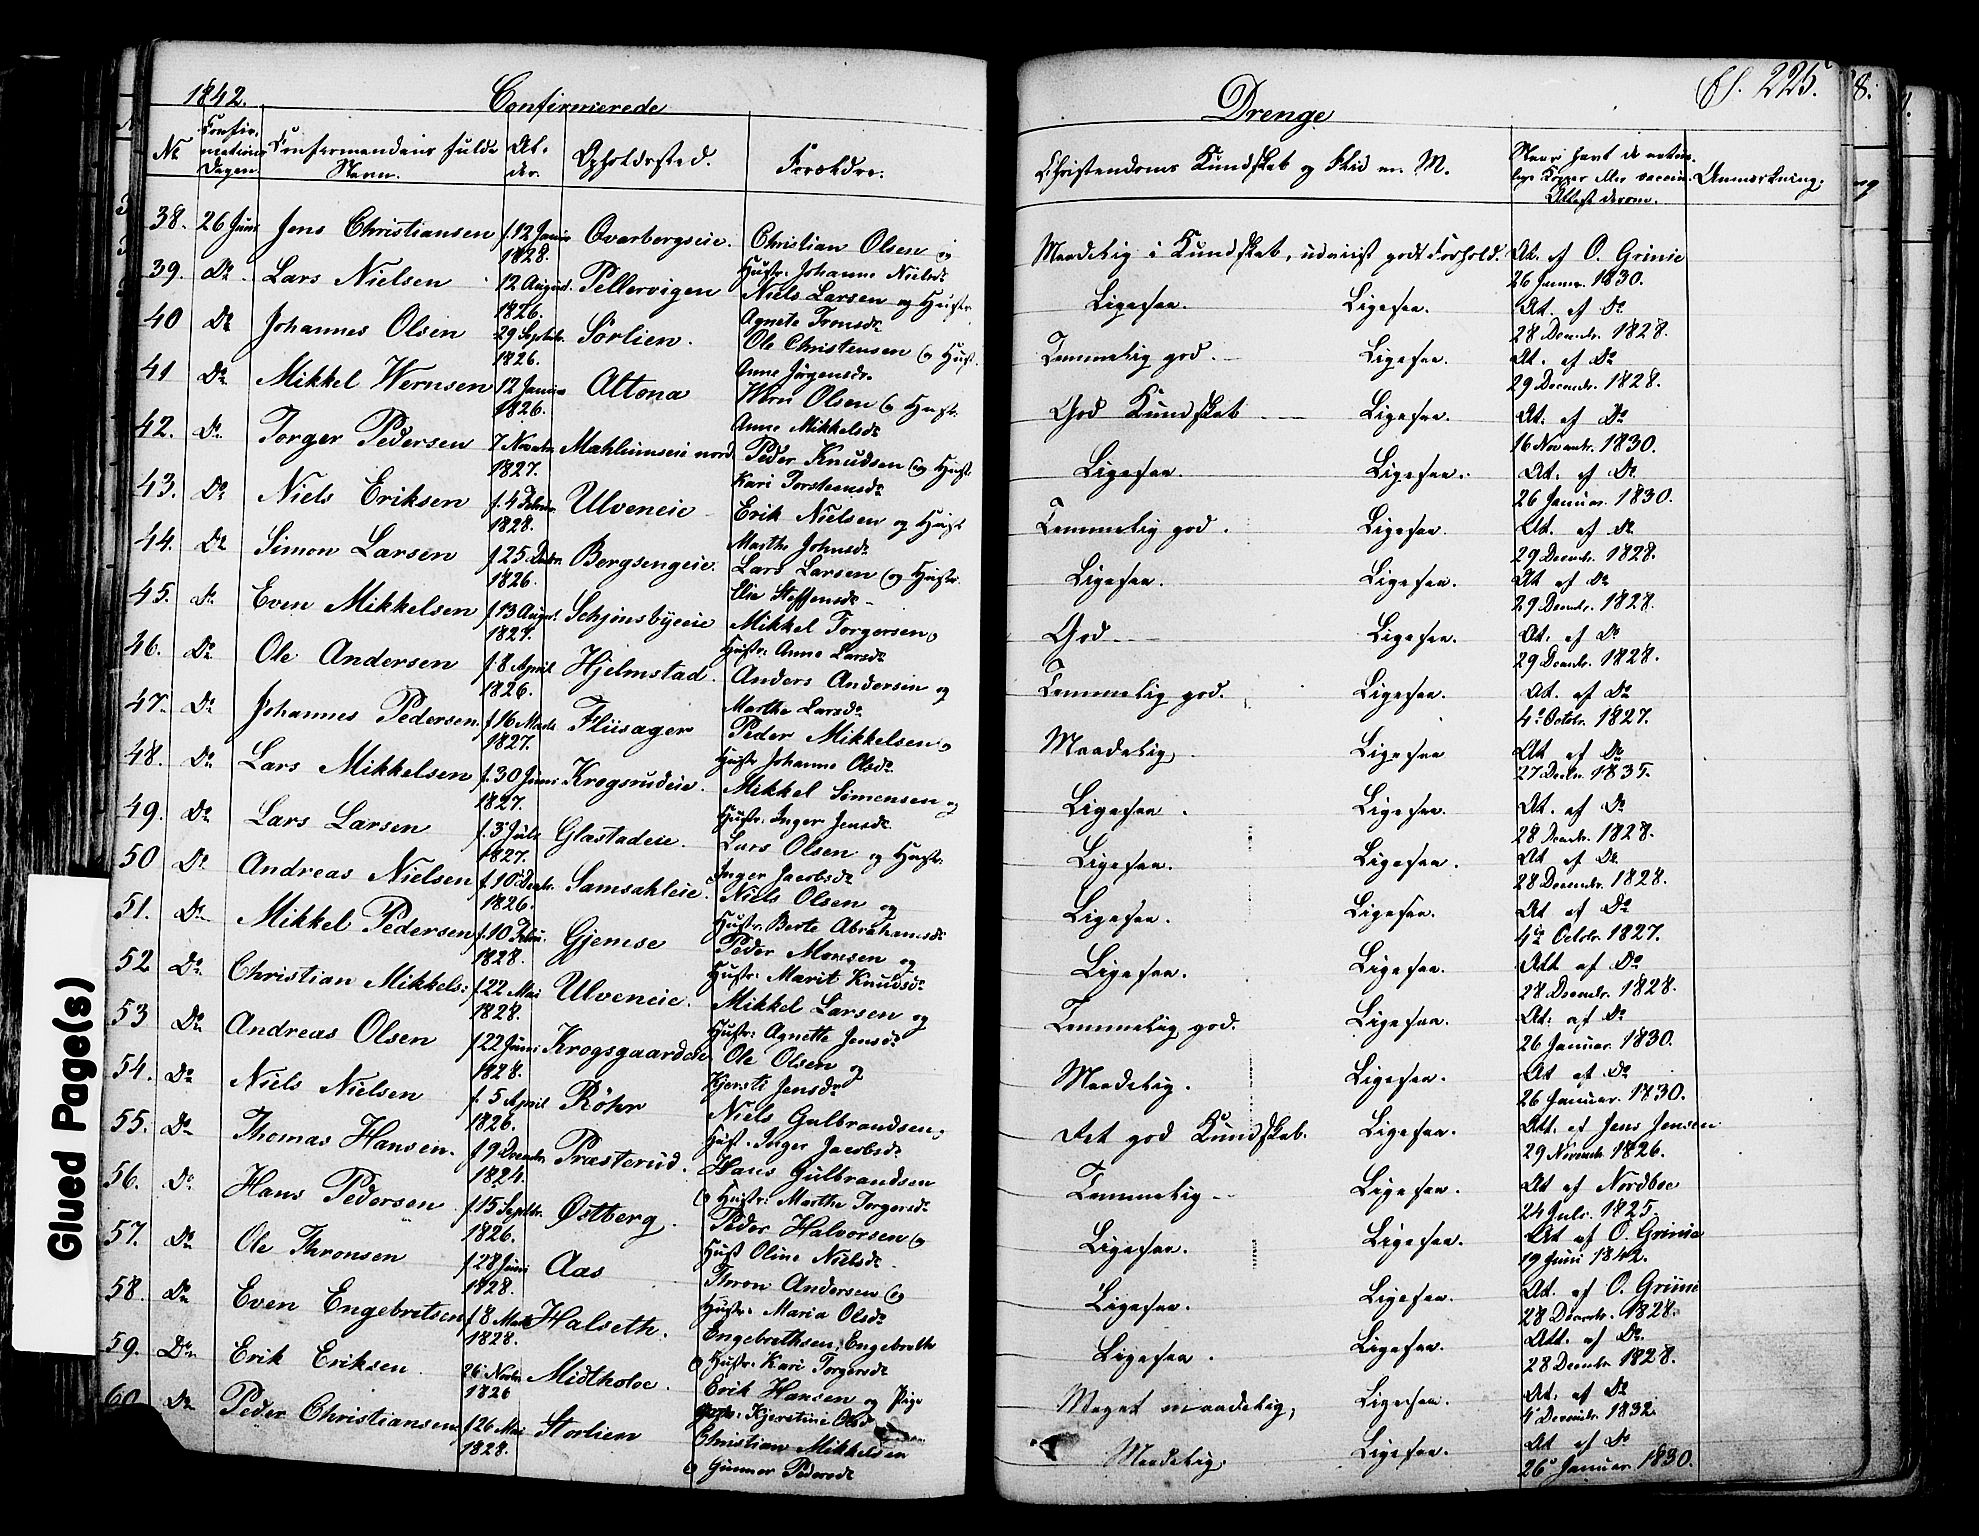 1842.
Confirmerede
No
Confir-
mations
Dagen
Confirmandens fulde
Navn.
Al-
der.
Opholdssted.
Forældre.
38. 26 Juni Jens Christiansen f. 12 Januar 1828. Overbergseie. Christian Olsen og
Hustr: Johanne Nielsdr
39. Do. Lars Nielsen 12 August. 1826. Pellervigen Niels Larsen og Hustr.
Agnete Tronsdr
40 Do Johannes Olsen 29 Septbr. 1826. Sörlien. Ole Christensen og Hust.
Anne Jörgensdr.
41 Do Mikkel Wernsen 12 Januar 1826. Altona Wern Olsen og Hustr.
Anne Mikkelsdr
42. Do. Torger Pedersen 7 Novembr 1827. Mahlumseie nord. Peder Knudsen og Hustr.
Kari Torstensdr
43. Do Niels Eriksen f. 4 Februar 1828. Ulveneie Erik Nielsen og Hust
Marthe Johnsdr
44. Do Simon Larsen f 25 Decbr 1826. Borgsengeie. Lars Larsen og Hustr.
Elie Steffensdr
45. Do Even Mikkelsen f 13 August. 1827. Schjönsbyeeie Mikkel Torgersen,
Hustr: Anne Larsdr
46. Do Ole Andersen f. 8 April 1826. Hjelmstad. Anders Andersen og
Marthe Larsdr.
47. Do Johannes Pedersen f 16 Marts 1827. Fliisager Peder Mikkelsen og
Hustr Johanne Olsdr
48. Do Lars Mikkelsen f. 30 Juni 1827. Krogsrudeie. Mikkel Simensen og
Hustr: Inger Jensdr
49. Do Lars Larsen f. 3 Juli 1827. Glæstadeie. Lars Olsen og Hustr.
Inger Jacobsdr
50 Do Andreas Nielsen f. 10 Decbr. 1826. Samsahleie. Niels Olsen og
Hustr: Berte Abrahamsdr
51. Do Mikkel Pedersen f. 10 Febru. 1828. Gjemse Peder Monsen og
Hustr: Marit Knudsdr
52 Do Christian Mikkels: f. 22 Mai 1828. Ulveneie. Mikkel Larsen og
Hustr: Agnette Jensdr
53 Do Andreas Olsen f 22 Juni 1828. Krogsgaardeie Ole Olsen og
Kjersti Jensdr
54. Do Niels Nielsen f. 5 April 1826. Röhr Niels Gulbrandsen,
Hust: Inger Jacobsdr
55. Do Thomas Hansen. f 9 Decembr 1824. Præsterud. Hans Gulbrandsen
og Hustr: Marthe Torgersdr
56. Do Hans Pedersen f 15 Septbr. 1826. Østberg. Peder Halvorsen og
Hust Oline Nielsdr
57. Do Ole Thronsen f 28 Juni 1828. Aas Thron Andersen og
Hustr: Maria Olsdr
58. Do Even Engebretsen f 8 Marts 1828. Halseth. Engebrethsen, Engebreth
og Hustr: Kari Torgersdr
59. Do. Erik Eriksen 26 Novbr 1826 Midtholoe. Erik Hansen og Pige
Kjerstine Olsdr
60 Do Peder Christiansen f 26 Mai 1828. Storlien Christian Mikkelsen
og Gunner Pedersdr
Drenge
fl. 225.
8.
Christendoms Kundskab og Flid m. M.
Naar havt de natur-
lige Kopper eller vaccin:
Attest derom.
Anmerkning.
Maadelig i Kundskab, udviist godt Forhold. At. af O. Grinie
26 Januar. 1830.
Ligesaa. Ligesaa. At. af Do
28 Decembr. 1828.
Temmelig god. Ligesaa. At. af Do
29 Decembr. 1828.
God Kundskab Ligesaa. At. af Do
16 Novembr. 1830.
Ligesaa. Ligesaa. At. af Do
26 Januar. 1830.
Temmelig god. Ligesaa. At. af Do
29 Decembr. 1828.
Ligesaa. Ligesaa. At af Do
29 Decembr. 1828.
God. Ligesaa. At. af Do
29 Decembr. 1828.
Temmelig god. Ligesaa. At. af Do
4de Octobr. 1827.
Maadelig, Ligesaa At af Do
27 Decbr. 1835.
Ligesaa. Ligesaa. At. af Do
28 Decembr. 1828.
Ligesaa. Ligesaa. At af Do
28 Decembr. 1828.
Ligesaa. Ligesaa. At af Do
4de Octobr. 1827.
Ligesaa. Ligesaa. Att af Do
28 Decembr. 1828.
Temmelig god. Ligesaa. At. af Do
26 Januar. 1830.
Maadelig. Ligesaa. At af Do
26 Januar. 1830.
Det god Kundskab. Ligesaa. Att. af Jens Jensen
29 Novembr. 1826.
Temmelig Ligesaa. At af Nordboe
24 Juli. 1825.
Ligesaa. Ligesaa. At af O. Grinie
19 Juni 1842.
Ligesaa. Ligesaa. At. af O. Grinie
28 Decembr. 1828.
Ligesaa. Ligesaa. Att. af Do
28 Decembr 1828.
Meget maadelig, Ligesaa. At. af Do
4 Decembr. 1832.
Maadelig. Ligesaa. At af Do
26 Januar 1830.
Glued Page(s)